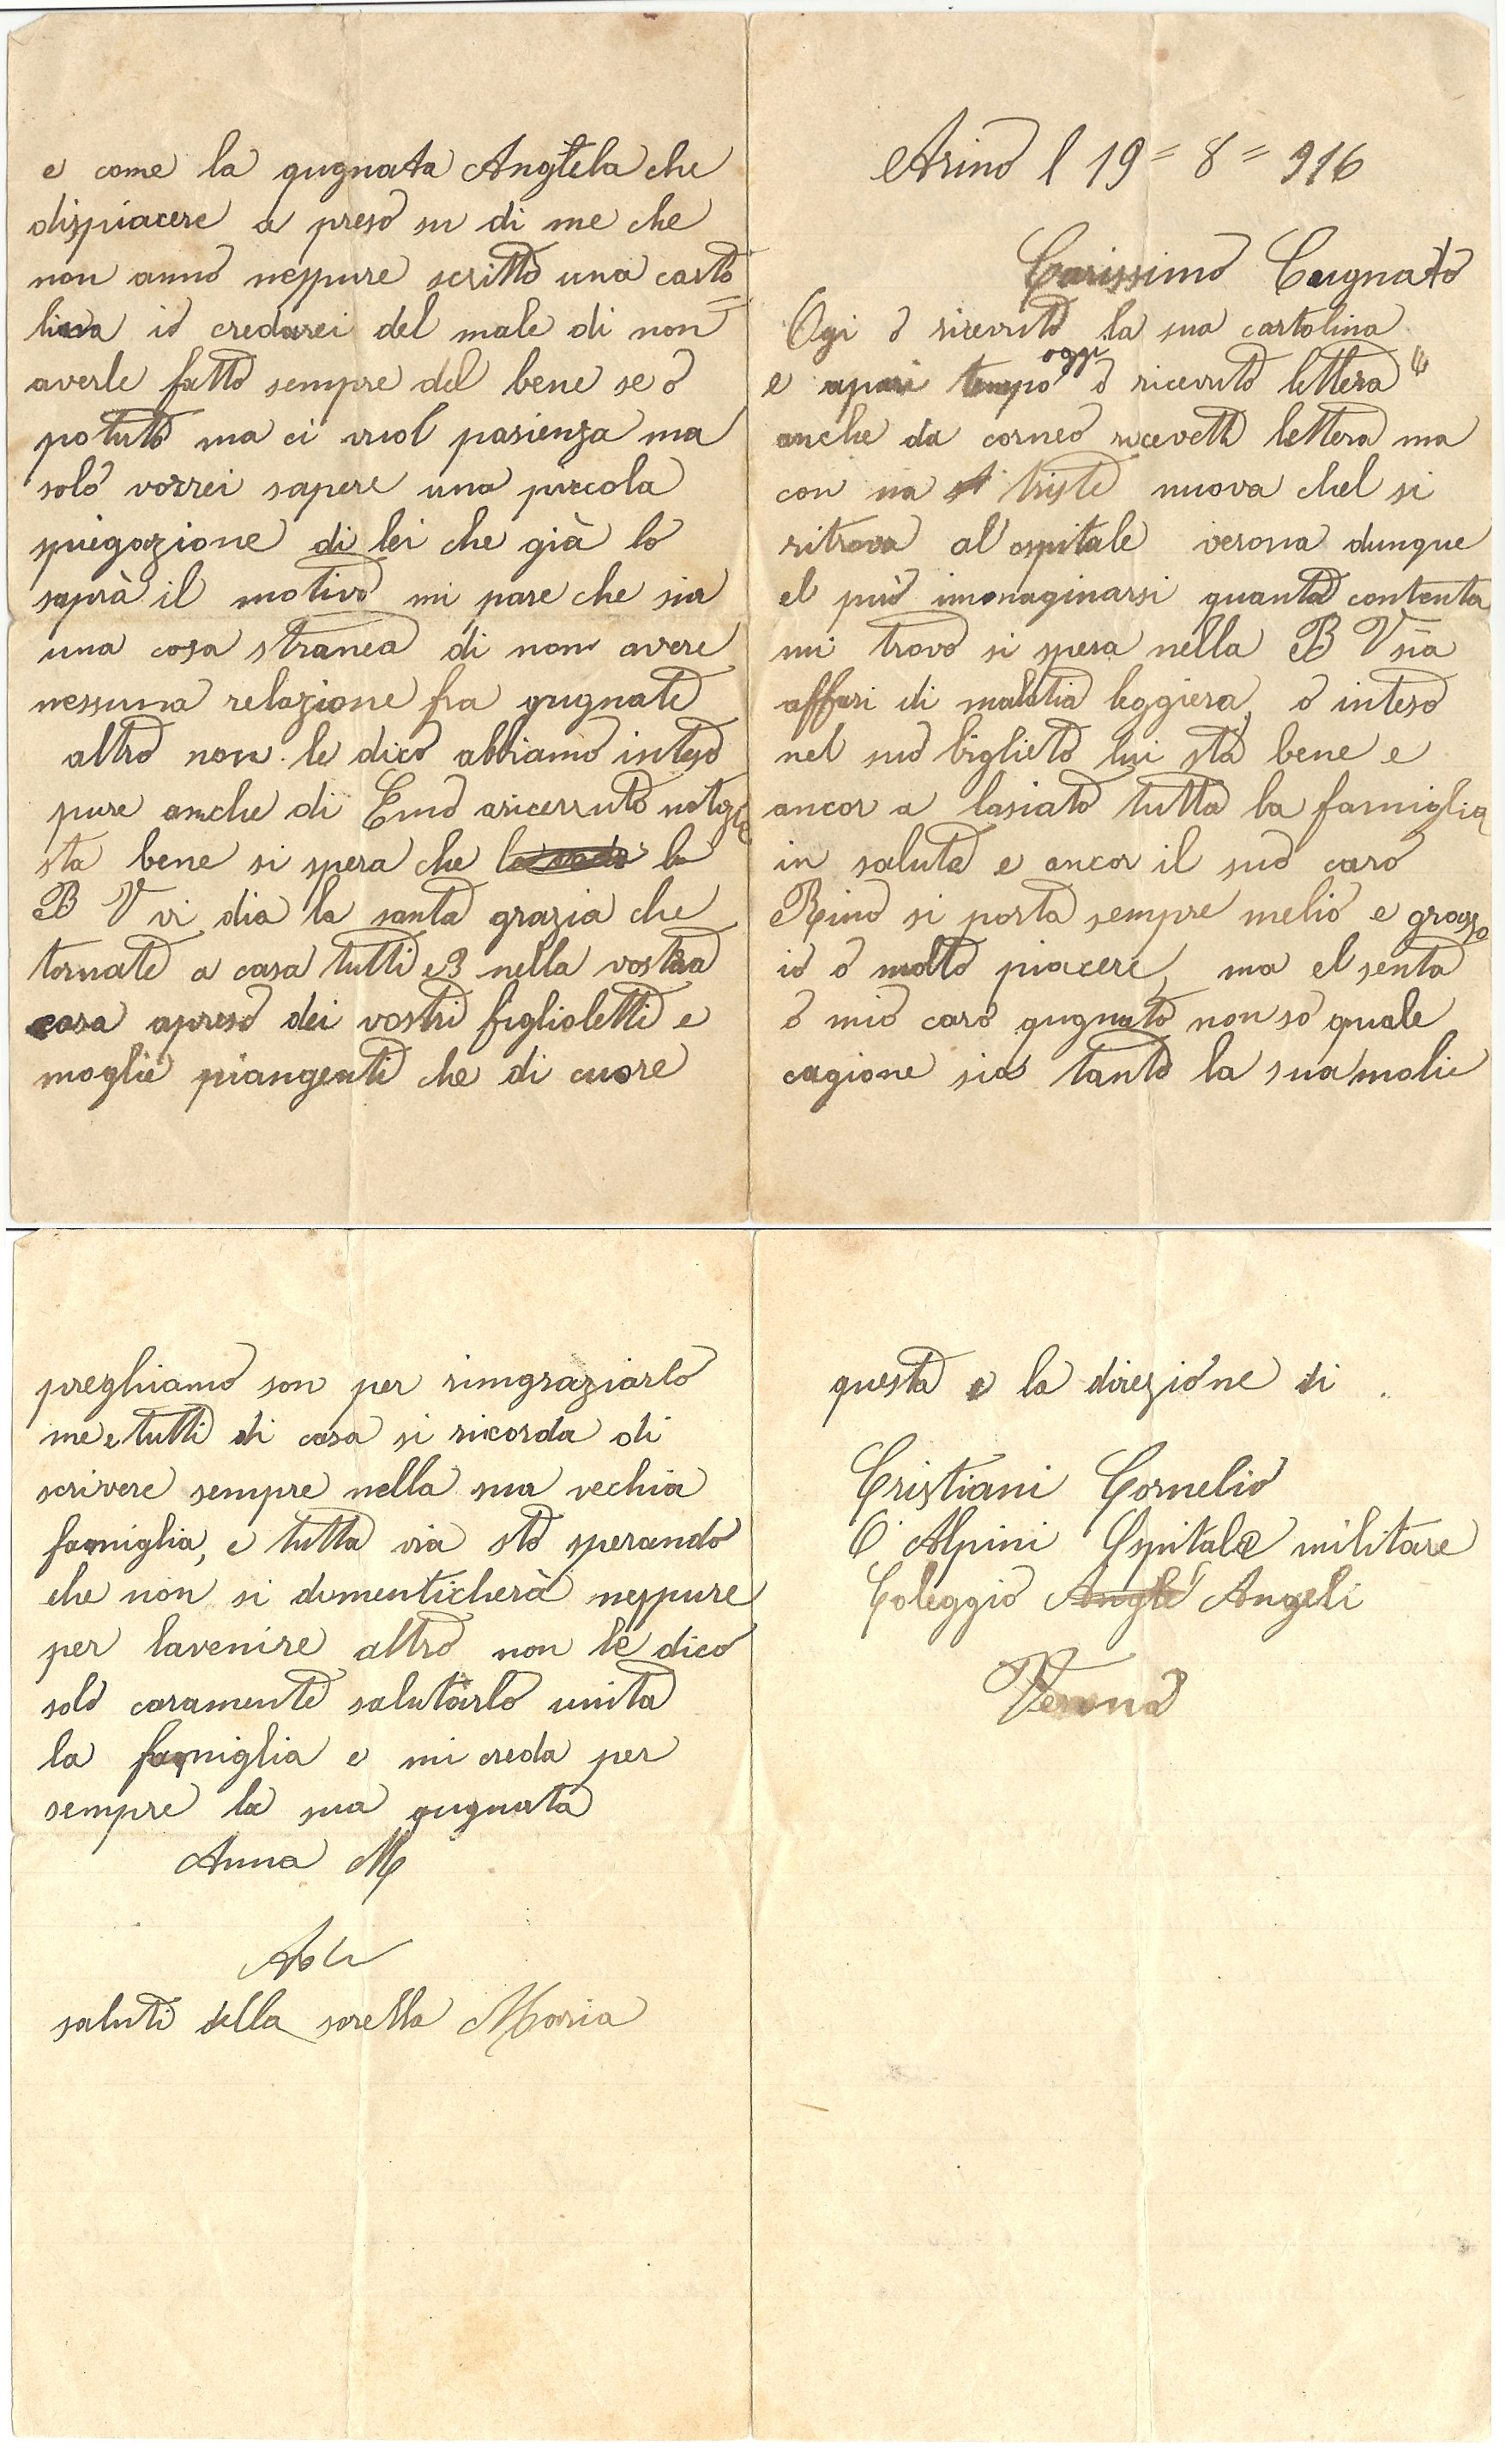 Arino l 19 = 8 = 916
Carissimo Cugnato
Ogi ò ricevuto la sua cartolina
e apari tempo oggi ò ricevuto lettera
anche da corneo ricevetti lettera ma
con na triste nuova chel si
ritrova al ospitale verona dunque
el può imonaginarsi quanta contenta
mi trovo si spera nella B V sia
affari di malatia leggiera, ò inteso
nel suo biglieto lui sta bene e
ancor a lasiato tutta la famiglia
in saluta e ancor il suo caro
Rino si porta sempre melio e grosso
io ò molto piacere, ma el senta
ò mio caro gugnato non so quale
cagione sia tanto la sua molie
e come la gugnata Angela che
dispiacere a preso su di me che
non anno neppure scritto una carto=
lina io credarei del male di non
averle fatto sempre del bene se ò
potuto ma ci vuol pasienza ma
solo vorrei sapere una piccola
spiegazione di lei che già lo
saprà il motivo mi pare che sia
una cosa stranea di non avere
nessuna relazione fra gugnate
altro non le dico abbiamo inteso
pure anche di Emo aricevuto notizie
sta bene si spera che la
B V vi dia la santa grazia che
tornate a casa tutti e 3 nella vostra
casa apreso dei vostri figlioletti e
moglie piangenti che di cuore
preghiamo son per rimgraziarlo
me e tutti di casa si ricorda di
scrivere sempre nella sua vechia
famiglia, e tutta via sto sperando
che non si dementicherà neppure
per lavenire altro non le dico
solo caramente salutarlo unita
la famiglia e mi creda per
sempre la sua gugnata
Anna M
saluti della sorella Maria
questa e la direzione di
Cristiani Cornelio
6 Alpini Ospitale militare
Coleggio Anglé Angeli
Verona